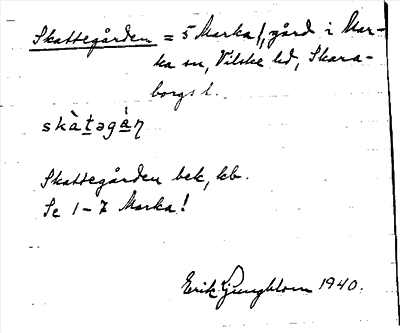 Skattegården = 5 Marka /, gård i Mar-
ka sn, Vilske hd, Skara-
borgs l.
skàtəgá̀n
Skattegården bek, kb.
Se 1-7 Marka!
Erik Ljungblom 1940.